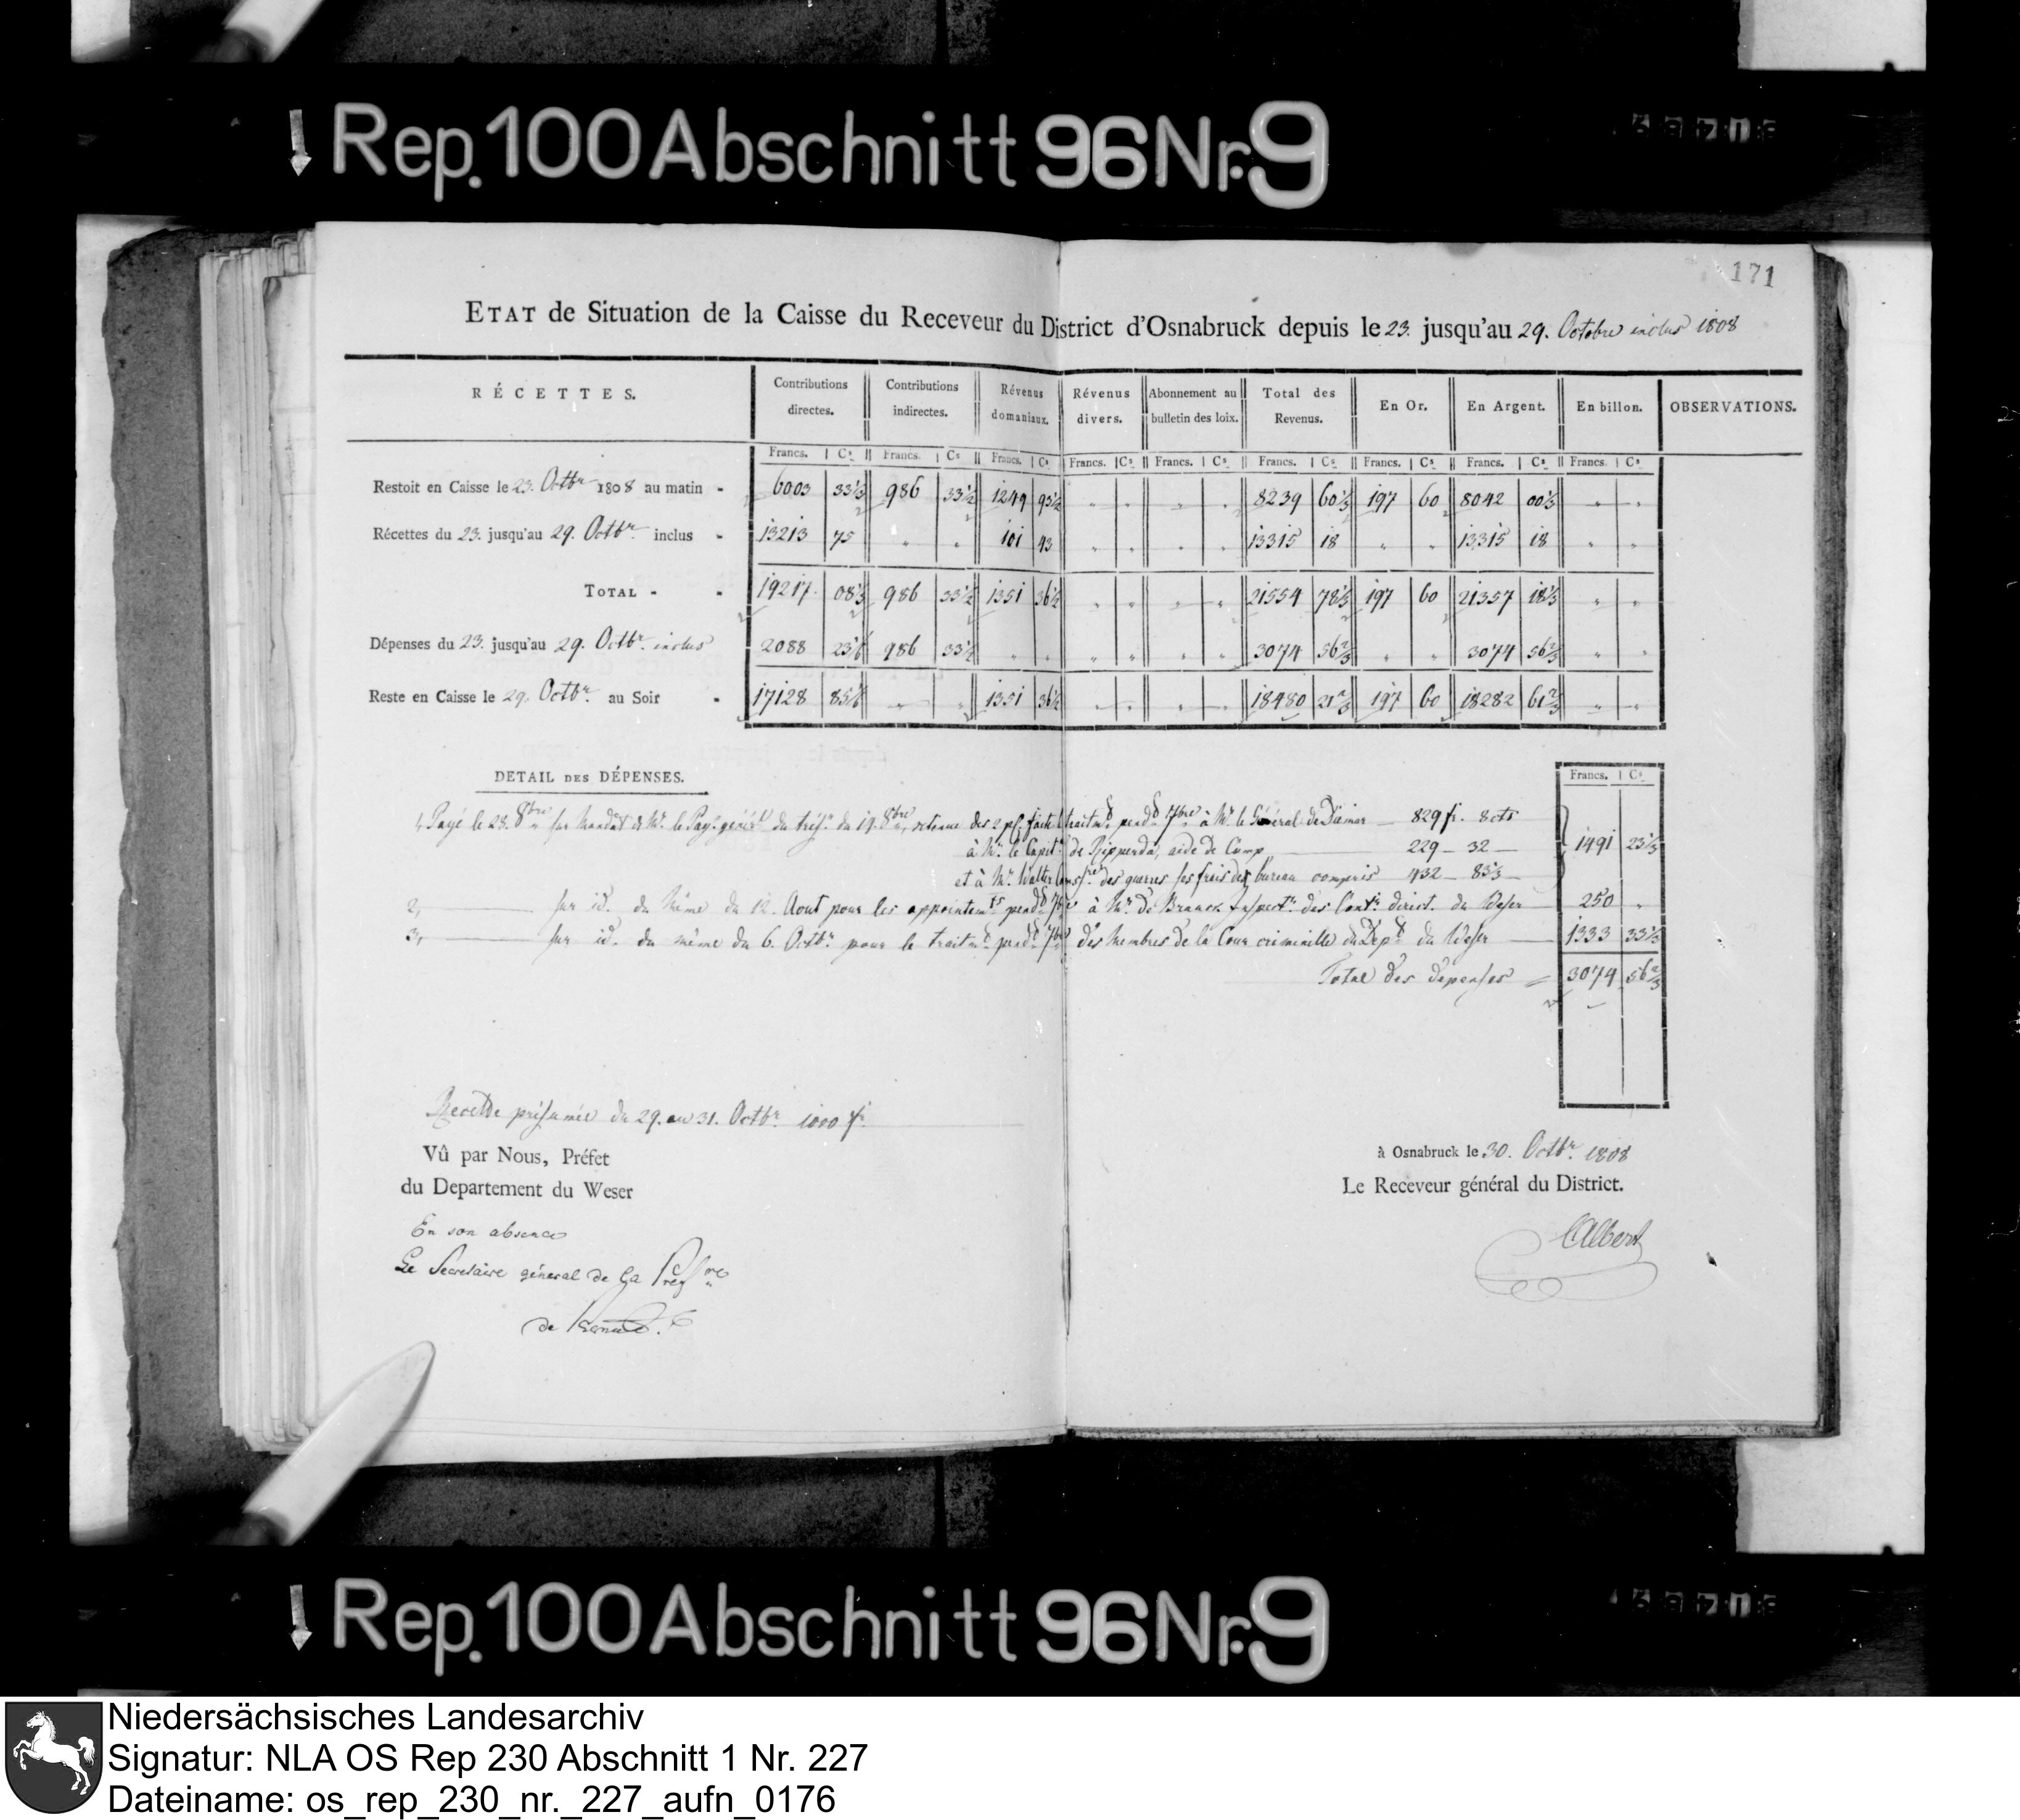 Rep. 100 Abschnitt 96 Nr. 9
171
ETAT de Situation de la Caisse du Receveur du District d'Osnabruck depuis le 23. jusqu'au 29. Octobre inclus 1808
RÉCETTES. Contributions directes. Contributions indirectes. Révenus domaniaux. Révenus divers. Abonnement au bulletin des loix. Total des Revenus. En Or. En Argent. En billon. OBSERVATIONS.
Francs. Cs. Francs. Cs. Francs. Cs. Francs. Cs. Francs. Cs. Francs. Cs. Francs. Cs. Francs. Cs. Francs. Cs.
Restoit en Caisse le 23. Octbr. 1808 au matin - 6003 33 1/3 986 33 1/2 1249 93 1/2 " " " " 8239 60 1/3 197 60 8042 00 1/3 " "
Récettes du 23. jusqu'au 29. Octbr. inclus - 13213 75 " " 101 43 " " " " 13315 18 " " 13315 18 " "
TOTAL - - 19217. 08 1/3 986 33 1/2 1351 36 1/2 " " " " 21554 78 1/3 197 60 21357 18 1/3 " "
Dépenses du 23. jusqu'au 29. Octbr. inclus 2088 23 1/6 986 33 1/2 " " " " " " 3074 56 2/3 " " 3074 56 2/3 " "
Reste en Caisse le 29. Octbr. au Soir - 17128 85 1/6 " " 1351 36 1/2 " " " " 18480 21 2/3 197 60 18282 61 2/3 " "
DETAIL DES DÉPENSES. Francs. Cs.
1, Payé le 28. 8bre sur Mandat de Mr. le Pay. génér. du trés. du 19. 8bre, retenue des 2 pC. faite traitmt. pendt. 7bre à Mr. le Général de Diemar — 829 fr. 8 cts
à Mr. le Capit. de Ripperda, aide de Camp — 229 — 32 — 1491 23 1/3
et à Mr. Walter Comssre. des guerres ses frais de bureau compris 432 — 83 1/3 —
2, — sur id. du Même du 12. Aout pour les appointemts. pendt. 7bre à Mr. de Inspectr. des Contr. direct. du Weser 250 "
3, — sur id. du même du 6. Octbr. pour le traitmt. pendt. 7bre des Membres de la Cour criminelle du Dept. du Weser — 1333 33 1/3
Total des depenses = 3074 56 2/3
Recette présumée du 29. au 31. Octbr. 1000 fr.
Vû par Nous, Préfet
du Departement du Weser
En son absence
Le Secretaire général de la Préfre
à Osnabruck le 30. Octbr. 1808
Le Receveur général du District.
CAlbert
Rep. 100 Abschnitt 96 Nr. 9
Niedersächsisches Landesarchiv
Signatur: NLA OS Rep 230 Abschnitt 1 Nr. 227
Dateiname: os_rep_230_nr._227_aufn_0176